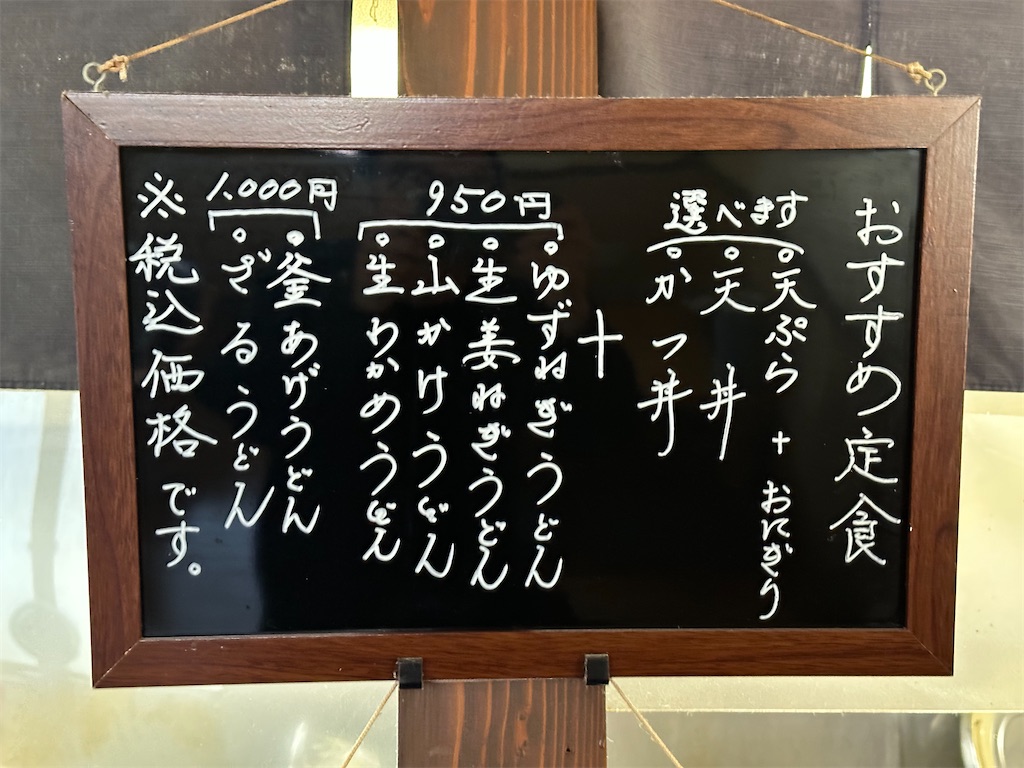 おすすめ定食
選べます
。天ぷら + おにぎり
。天丼
。かつ丼
+
950円
。ゆずねぎうどん
。生姜ねぎうどん
。山かけうどん
。生わかめうどん
1.000円
。釜あげうどん
。ざるうどん
※税込価格です。